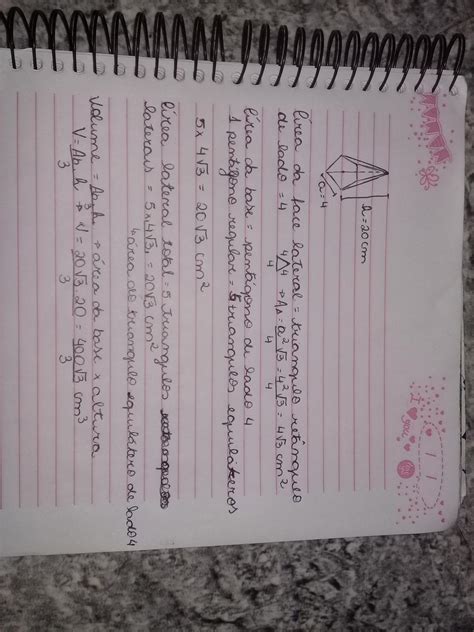 h=20cm
a=4
Área da face lateral = triângulo retângulo
de lado = 4 4 4 → AΔ = a²√3 = 4²√3 = 4√3 cm²
4 4 4
Área da base = pentágono de lado 4
1 pentágono regular = 5 triangulos equilateros
5 x 4√3 = 20√3 cm²
Área lateral total = 5 triangulos
laterais = 5 x 4√3 = 20√3 cm²
↳ área do triangulo equilátero de lado 4
Volume = Ab x h → área da base x altura
3
V = Ab h → V = 20√3 20 = 400√3 cm³
3 3 3
I ♥ you